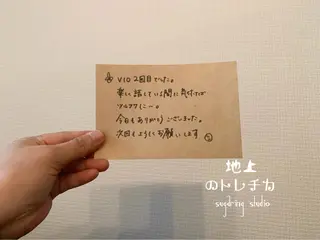 VIO 2回目でした。
楽しく話している間に気付けば
ツルツルに〜。
今日もありがとうございました。
次回もよろしくお願いします
地上
のトレチカ